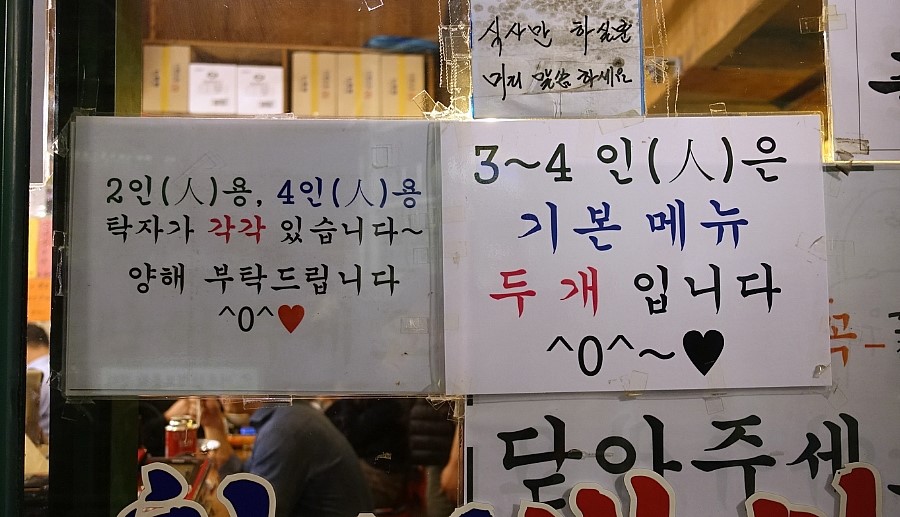 식사만 하실분
미리 말씀하세요
2인(人)용, 4인(人)용
탁자가 각각 있습니다~
양해 부탁드립니다
^0^♥
3~4 인(人)은
기본 메뉴
두 개 입니다
^0^~♥
닫아주세